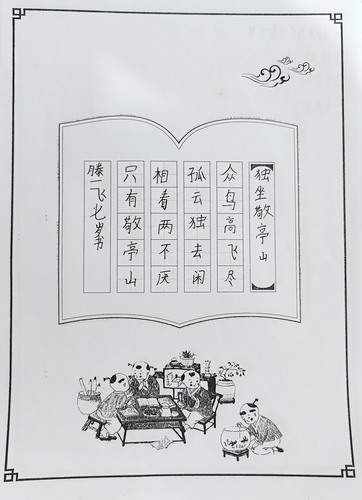 独坐敬亭山
众鸟高飞尽
孤云独去闲
相看两不厌
只有敬亭山
滕一飞七岁书